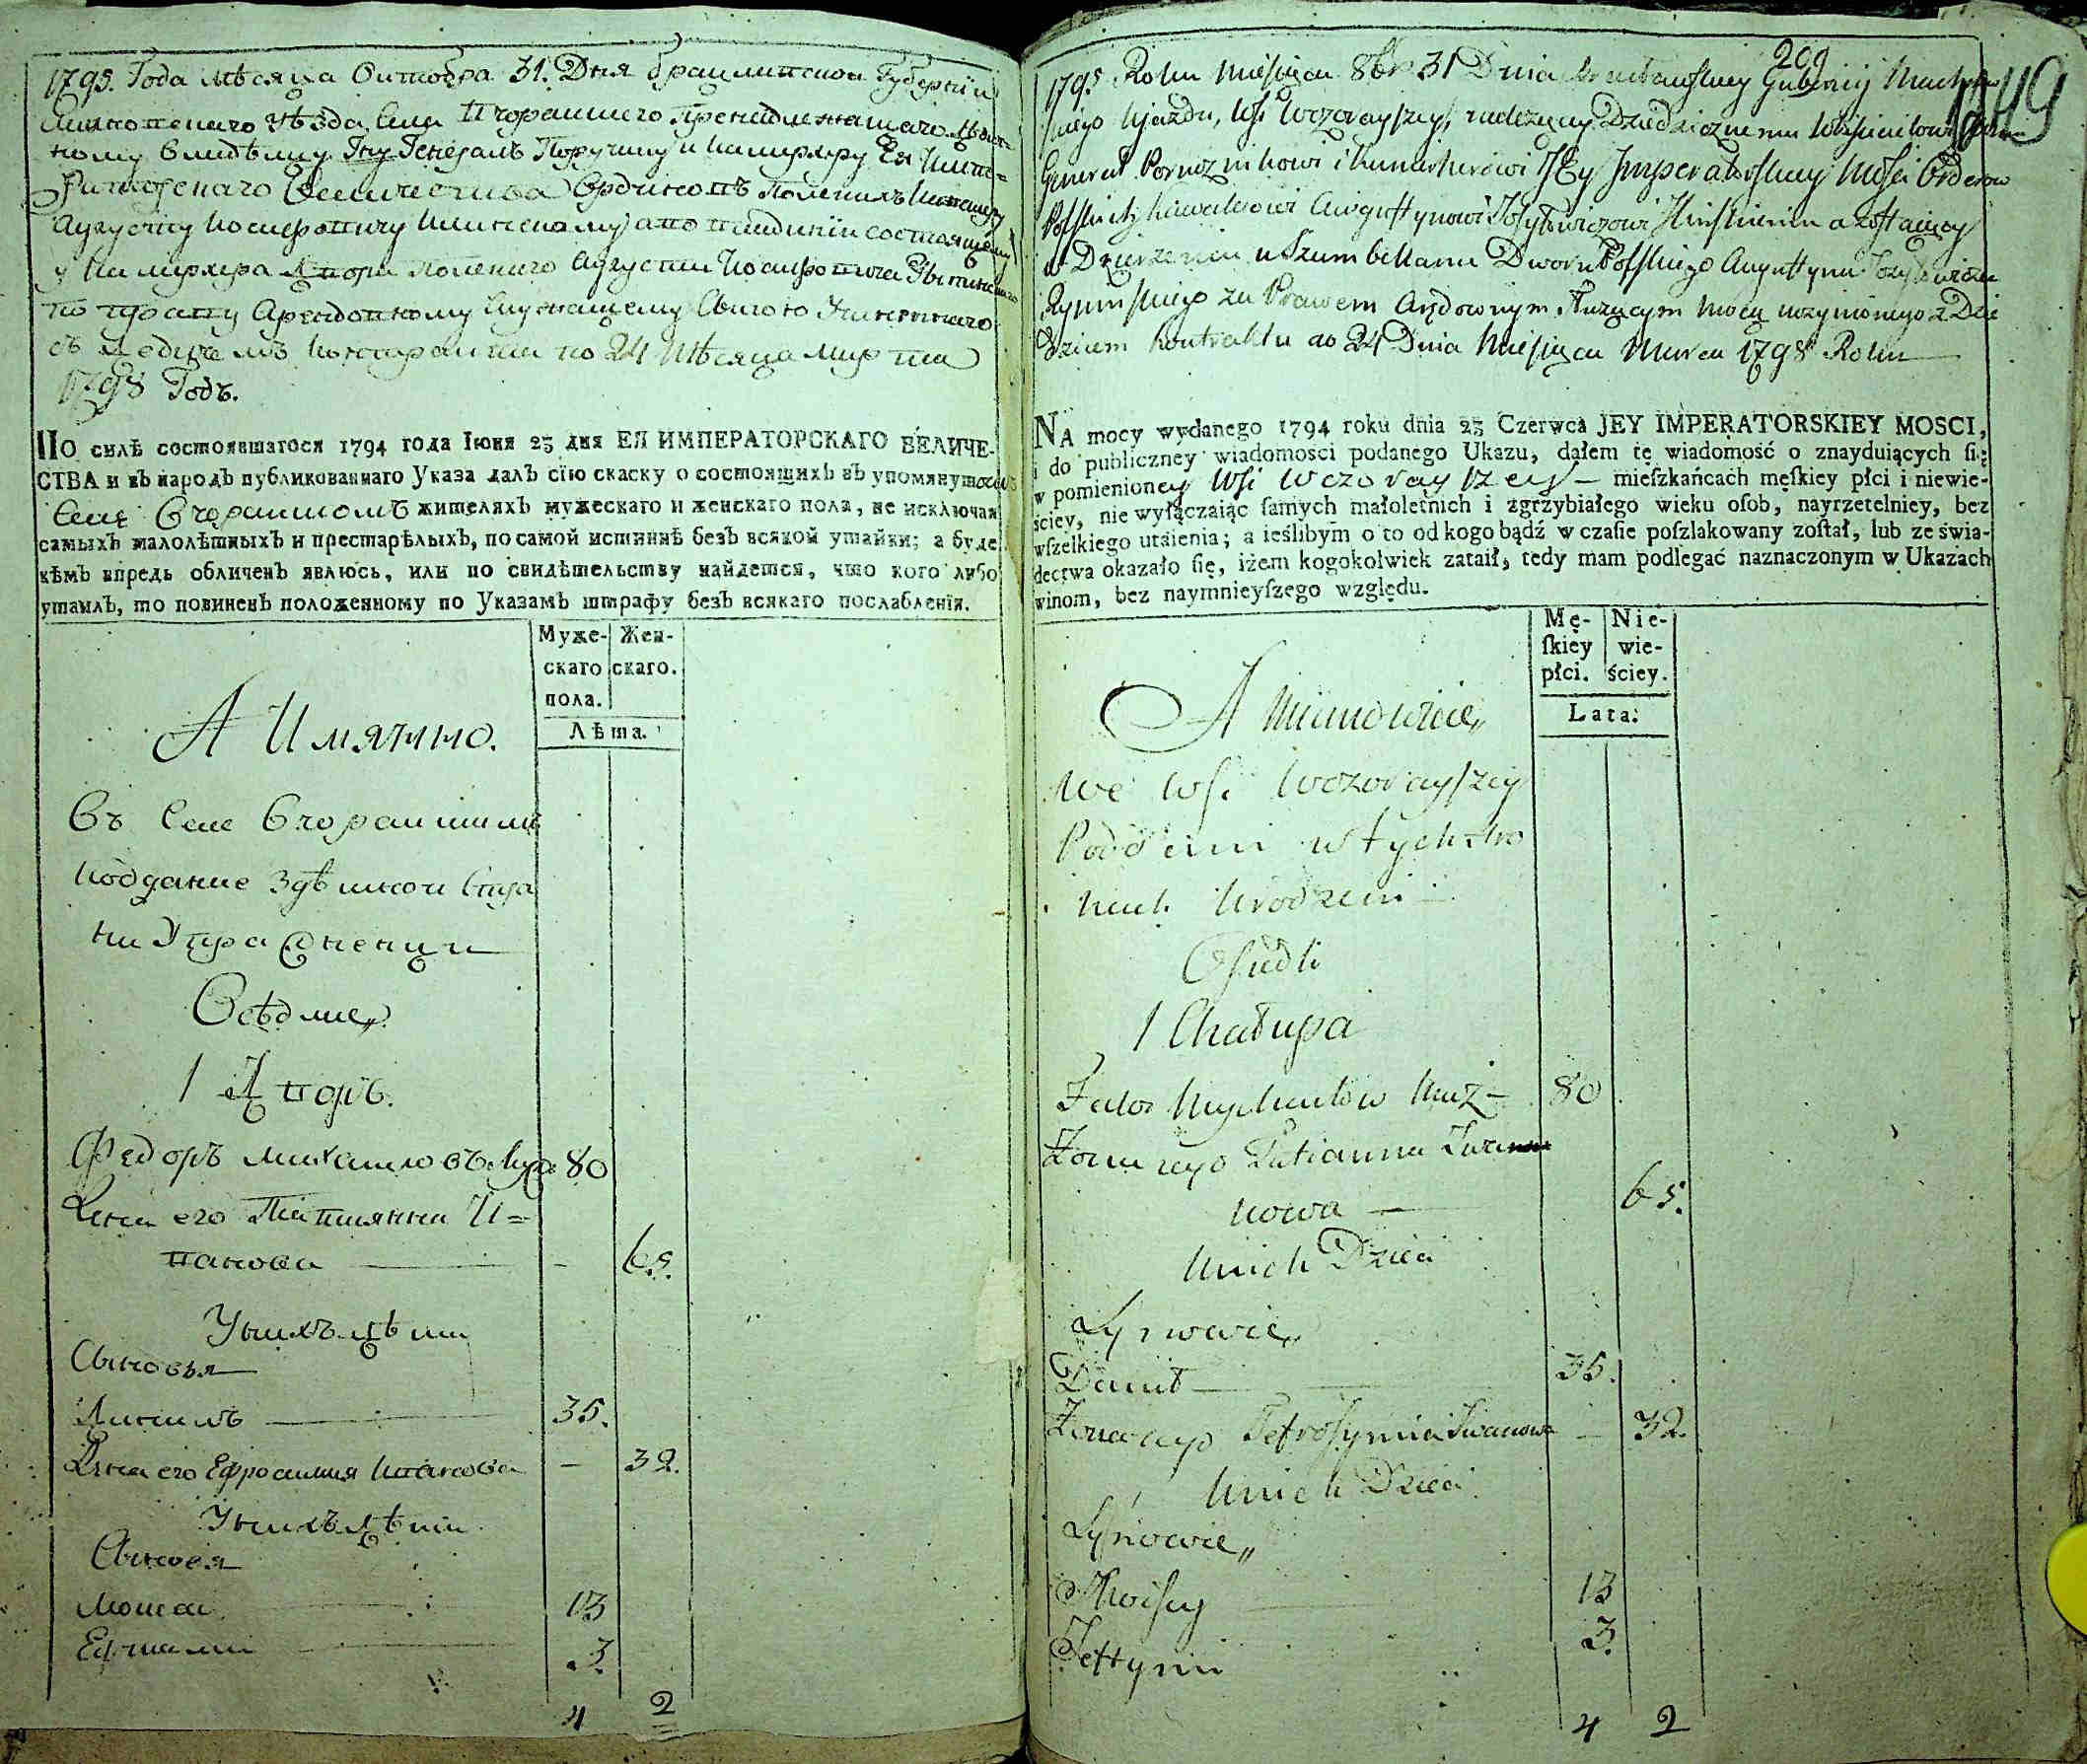 1795. Года мѣсяца Октобра 31. Дня брацлавской Губернїи
уѣзда села Вчорашнего
Генералъ Порутчику и камергеру Ея Импе=
раторскаго Величества Ординовъ Полскихъ
Августину Иосифовичу
у камергера двора полскаго Августина Иосифовича
по праву Арендовному служащему силою Учиненнаго
съ контракта по 24 Мѣсяца марта
1798 Годъ.
ПО силѣ состоявшагося 1794 года Іюня 23 дня ЕЯ ИМПЕРАТОРСКАГО ВЕЛИЧЕ-
СТВА и въ народъ публикованнаго Указа далъ сїю скаску о состоящихъ въ упомянутомъ
селе Вчорашномъ жителяхъ мужескаго и женскаго пола, не исключая
самыхъ малолѣтныхъ и престарѣлыхъ, по самой истиннѣ безъ всякой утайки; а буде
кѣмъ впредь обличенъ явлюсь, или по свидѣтельству найдется, что кого либо
утаилъ, то повиненъ положенному по Указамъ штрафу безъ всякаго послабленїя.
Муже- Жен-
скаго скаго.
пола.
Лѣта.
А Имянно.
Въ селе Вчорашнимъ
поддание здѣшной стра
ни Уражненци
Осѣдлие
1 Дворъ.
Федоръ михайловъ Мужъ 80
Жена его Татиянна И=
ванова — 65.
У нихъ дѣти
Сыновья
Данилъ 35.
Жена его Ефросиния Иванова — 32.
У нихъ дѣти
Сыновя
Мойсей 13
Ефтими 3.
4 2
209
1149
1795 Roku Miesięca 8br 31 Dnia Bracławskiey Gubernij Machnow
skiego Ujazdu, Wsi Wczorayszey, należącey Dziedzicznemu
Generał Porucznikowi i Kamerherowi JEy Imperatorskiey Mości Orderow
Polskich kawalerowi Augustynowi Jozyfowiczowi Ilinskiemu a zostaiącey
w Dzierżeniu u Szambellana Dworu Polskiego Augustyna Jozyfowicza
za Prawem Arędownym, służącym mocą uczynionego z Dzie
dzicem kontraktu do 24 Dnia Miesięca Marca 1798 Roku
NA mocy wydanego 1794 roku dnia 23 Czerwca JEY IMPERATORSKIEY MOSCI,
i do publiczney wiadomości podanego Ukazu, dałem tę wiadomość o znayduiących się
w pomienioney Wsi Wczorayszey — mieszkańcach męſkiey płci i niewie-
ściey, nie wyłączaiąc ſamych małoletnich i zgrzybiałego wieku oſob, nayrzetelniey, bez
wſzelkiego utaienia; a ieślibym o to od kogo bądź w czaſie poſzlakowany zoſtał, lub ze świa-
dectwa okazało ſię, iżem kogokolwiek zataił, tedy mam podlegać naznaczonym w Ukazach
winom, bez naymnieyſzego względu.
Mę- Nie-
ſkiey wie-
płci. ściey.
Lata:
A Mianowicie
We Wsi Wczorayszey
Poddani w tych stro
nach Urodzeni
Osiedli
1 Chałupa
Fedor Mychaiłow Mąż 80
Żona iego Tatianna Iwa
nowa — 65.
U nich Dzieci
Synowie
Danił 35.
Żona iego Jefrosynia Iwanowa — 32.
U nich Dzieci
Synowie
Moisey 13
Jeftymi 3.
4 2